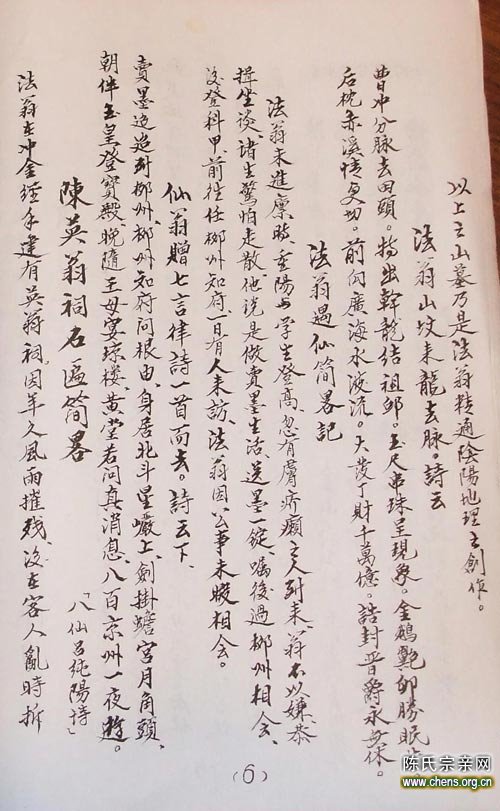 以上之山墓乃是法翁精通陰陽地理之創作。
法翁山坟来龍去脉。詩云
曹冲分脉去田頭。特出幹龍结祖邱。玉尺串珠呈现象。金鵝艷卵勝眠
后枕赤溪情更切。前向廣海水漩流。大发丁財千萬億。誥封晋爵永無休。
法翁遇仙简畧記
法翁未進廪時，重陽与学生登高，忽有膚疥癩之人到来，翁不以嫌、恭
揖坐谈、诸生驚怕走散他说是做賣墨生活、送墨一锭、嘱後過柳州相会、
後登科甲、前往任柳州知府、一日有人来訪、法翁因公事未暇相会。
仙翁贈七言律詩一首而去。詩云下、
賣墨迢迢到柳州、柳州知府问根由、身居北斗星巖上、劍掛蟾宫月角頭、
朝伴玉皇登寶殿晚隨王母宴琼楼、黄堂若问真消息、八百京州一夜遊。
「八仙吕纯陽詩」
陳英翁祠石匾简畧
法翁在冲金經手建有英翁祠、因年久風雨摧残、後在客人亂時拆
（6）
陈氏宗亲网
www.chens.org.cn